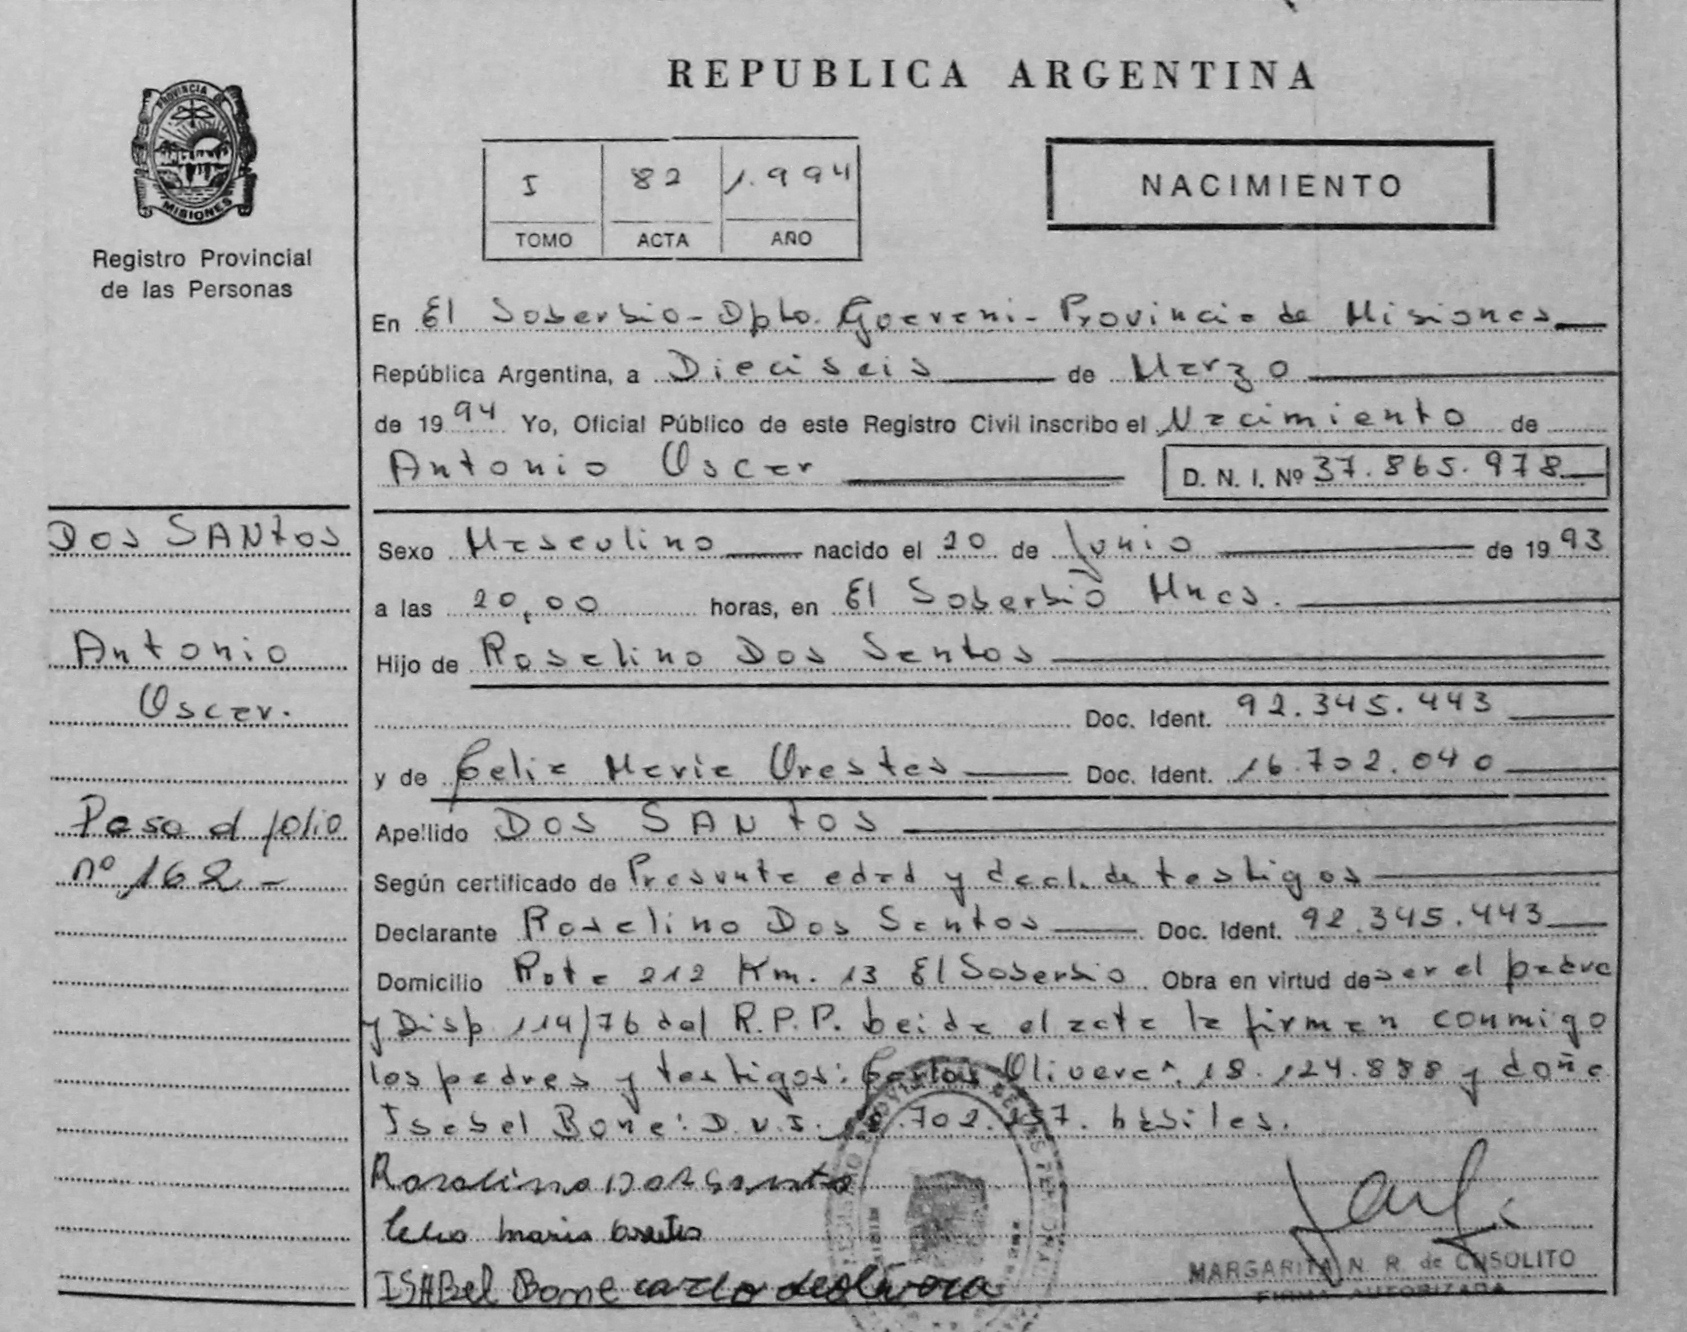 REPUBLICA ARGENTINA
PROVINCIA DE
MISIONES
Registro Provincial
de las Personas
I 82 1.994
TOMO ACTA AÑO
NACIMIENTO
En El Soberbio - Dpto. Guarani - Provincia de Misiones
República Argentina, a Dieciseis de Marzo
de 1994 Yo, Oficial Público de este Registro Civil inscribo el Nacimiento de
Antonio Oscar D. N. I. Nº 37.865.978
DOS SANtOS
Antonio
Oscar.
Pasa al folio
nº 162 -
Sexo Masculino nacido el 20 de Junio de 1993
a las 20,00 horas, en El Soberbio Mnes.
Hijo de Roselino Dos Santos
Doc. Ident. 92.345.443
y de Celia Maria Orestes Doc. Ident. 16.702.040
Apellido DOS SANtOS
Según certificado de Presunta edad y decl. de testigos
Declarante Roselino Dos Santos Doc. Ident. 92.345.443
Domicilio Ruta 212 Km. 13 El Soberbio Obra en virtud de ser el padre
y Disp 114/76 del R.P.P. leida el acta la firman conmigo
los padres y testigos: Carlos Olivera 18.124.888 y doña
Isabel Bone: D.N.I. .702. 57. habiles.
maria
ISABel Bone carlo deolivera
MARGARITA N. R. de CUSOLITO
FIRMA AUTORIZADA